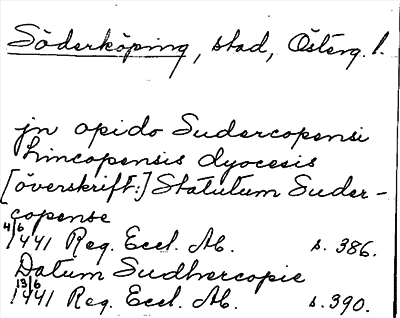 Söderköping, stad, Österg. l.
jn opido Sudercopensi
Lincopensis dyocesis
[överskrift:] Statutum Suder-
copense
4/6 1441 Reg. Eccl. Ab. s. 386.
Datum Sudhercopie
13/6 1441 Reg. Eccl. Ab. s. 390.